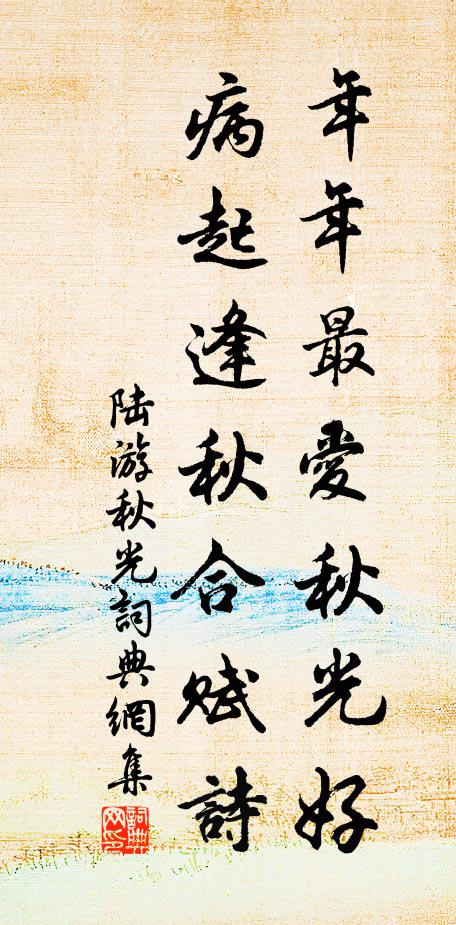 年年最愛秋光好
病起逢秋合賦詩
陆游秋光詞典網集
詞典網印